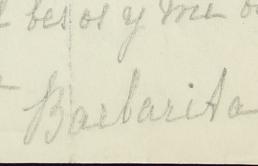 besos y mil
Barbarita